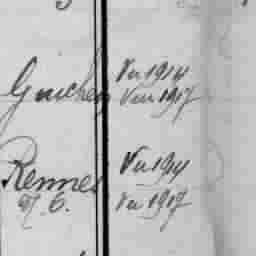 Guichen Vu 1914
Vu 1917
Rennes Vu 1914
Vu 1917